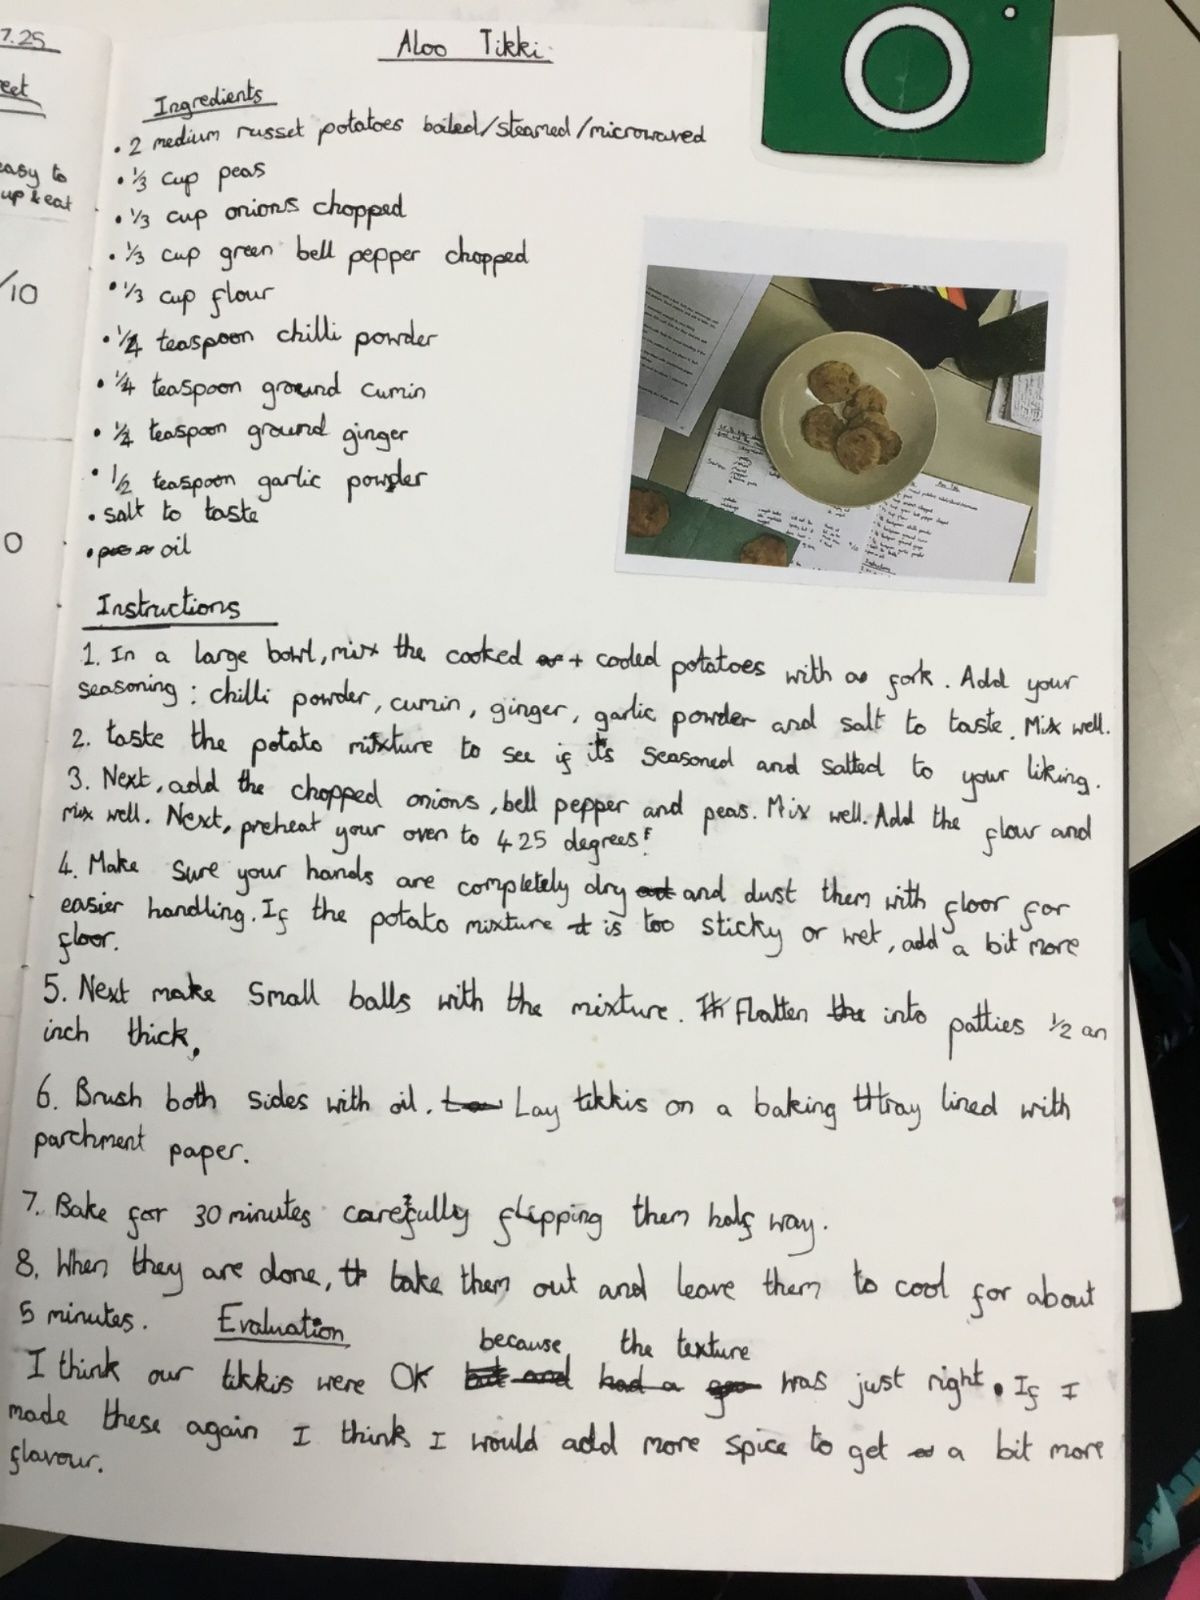 7.25
eet
easy to
up & eat
/10
0
Aloo Tikki
Ingredients
• 2 medium russet potatoes boiled/steamed/microwaved
• 1/3 cup peas
• 1/3 cup onions chopped
• 1/3 cup green bell pepper chopped
• 1/3 cup flour
• 1/4 teaspoon chilli powder
• 1/4 teaspoon ground cumin
• 1/4 teaspoon ground ginger
• 1/2 teaspoon garlic powder
• salt to taste
• oil
Instructions
1. In a large bowl, mix the cooked + cooled potatoes with a fork. Add your
seasoning: chilli powder, cumin, ginger, garlic powder and salt to taste. Mix well.
2. taste the potato mixture to see if it's seasoned and salted to your liking.
3. Next, add the chopped onions, bell pepper and peas. Mix well. Add the flour and
mix well. Next, preheat your oven to 425 degrees F.
4. Make sure your hands are completely dry and dust them with floor for
easier handling. If the potato mixture is too sticky or wet, add a bit more
floor.
5. Next make small balls with the mixture. Flatten into patties 1/2 an
inch thick.
6. Brush both sides with oil. Lay tikkis on a baking tray lined with
parchment paper.
7. Bake for 30 minutes carefully flipping them half way.
8. When they are done, take them out and leave them to cool for about
5 minutes.
Evaluation
I think our tikkis were OK because the texture was just right. If I
made these again I think I would add more spice to get a bit more
flavour.